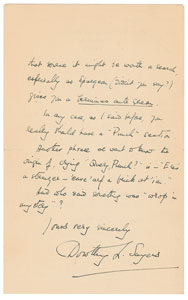 that source it might be worth a search,
especially as Spurgeon (didn't you say?)
gives you a terminus ante quem.
In my case, as I said before, you
really should have a "Punch" section
Another phrase we want to know the
origin of, crying "Every Punch"? is – "'Eres
a stranger – 'eave 'arf a brick at 'im"
And who said something was "wrop in
mystery"?
Yours very sincerely
Dorothy L. Sayers